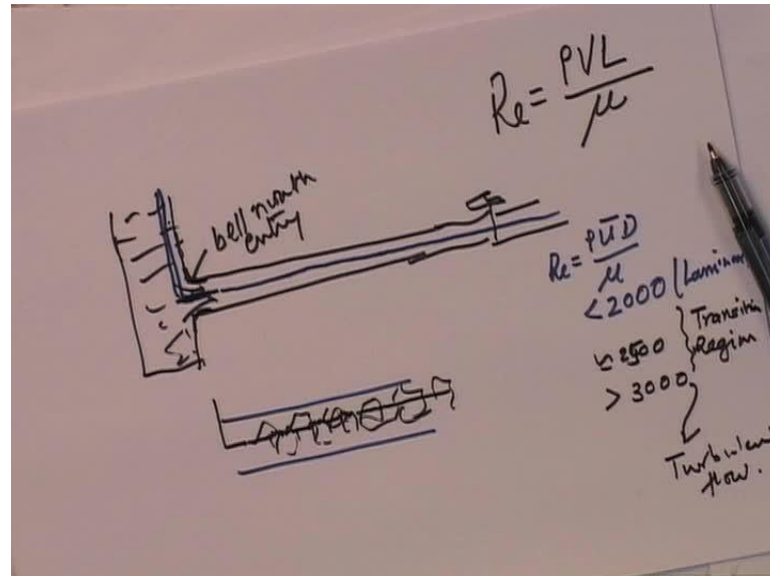 Re = ρVL / μ
bell mouth
entry
Re = ρU̅D / μ
< 2000 (Laminar
≃ 2500 } Transition
Regim
> 3000
Turbulent
flow.